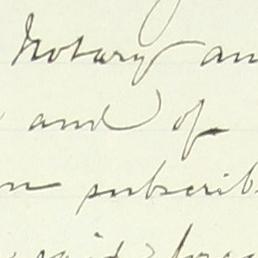 Notary an
and of
subscrib
said